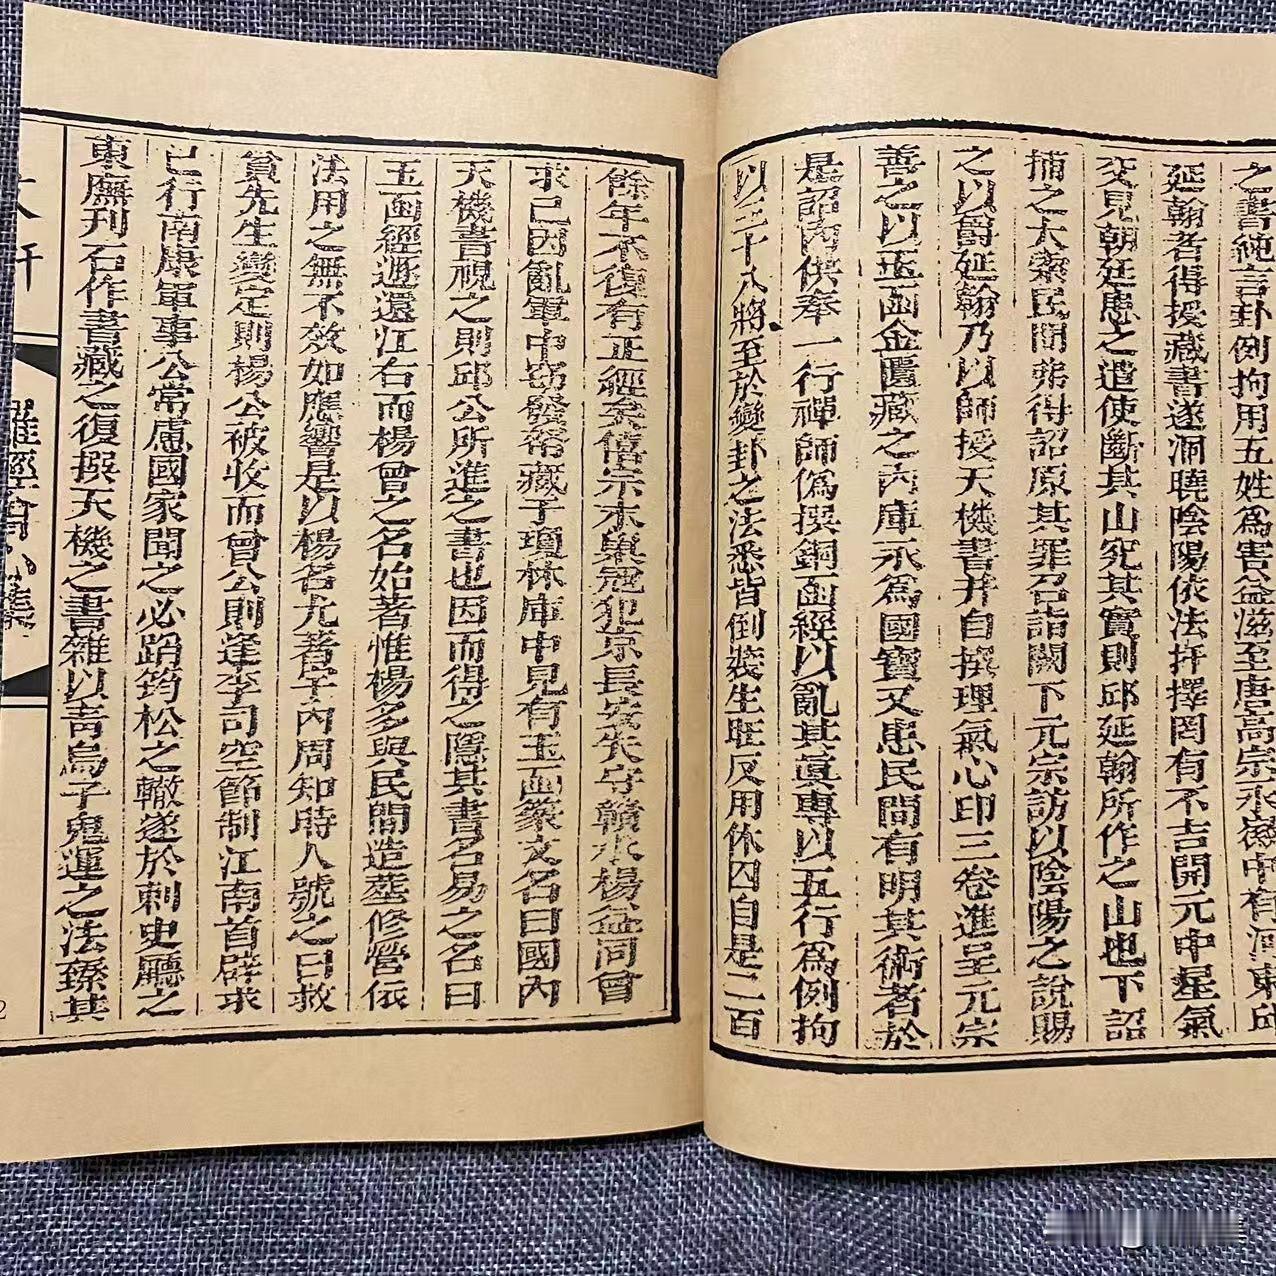 之書純言卦例拘用五姓為害益滋至唐高宗永徽中有河東邱
延翰者得授藏書遂洞曉陰陽依法扦擇罔有不吉開元中星氣
交見朝廷患之遣使斷其山究其實則邱延翰所作之山也下詔
捕之大索民間弗得詔原其罪召詣闕下元宗訪以陰陽之說賜
之以爵延翰乃以師授天機書并自撰理氣心印三卷進呈元宗
善之以玉函金匱藏之內庫永為國寶又患民間有明其術者於
是詔內供奉一行禪師偽撰銅函經以亂其真專以五行為例拘
以二十八將至於變卦之法悉皆倒裝生旺反用休囚自是二百
餘年不復有正經矣僖宗末巢寇犯京長安失守贛水楊益同曾
求己因亂軍中竊發帑藏于瓊林庫中見有玉函篆文名曰國內
天機書視之則邱公所進之書也因而得之隱其書名易之名曰
玉函經遯還江右而楊曾之名始著惟楊多與民間造塟修營依
法用之無不效如應響是以楊名尤著宇內周知時人號之曰救
貧先生變定則楊公被收而曾公則逢李司空節制江南首辟求
己行南康軍事公常慮國家聞之必蹈筠松之轍遂於刺史廳之
東廡刊石作書藏之復撰天機之書雜以青烏子鬼運之法臻其
羅經
2